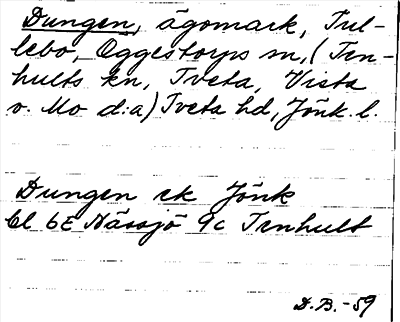 Dungen, ägomark, Tul-
lebo, Öggestorps sn, (Ten-
hults kn, Tveta, Vista
o. Mo d:a) Tveta hd, Jönk. l.
Dungen ek Jönk
bl 6E Nässjö 9c Tenhult
D.B. -59